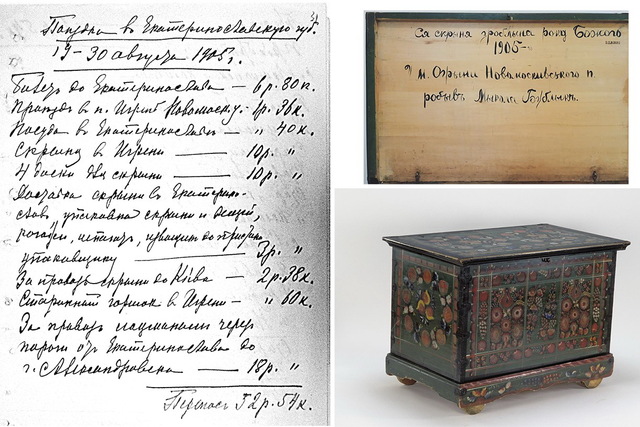 Поездка в Екатеринославскую губ.
19-30 августа 1905 г.
Билет до Екатеринослава — 6 р. 80 к.
Проезд в п. Игрень Новомоск. у. — 1 р. 36 к.
в Екатеринославе — " 40 к.
Скрыню в Игрени — 10 р. "
4 доски для скрыни — 10 р. "
Доставка скрыни в Екатерино-
слав, упаковка скрыни и вещей,
рогожи, извощик до
упаковщику — 3 р. "
За провоз скрыни до Киева — 2 р. 38 к.
Старинный горшок в Игрени — " 60 к.
За провоз через
пороги от Екатеринослава до
г. Александровска — 18 р. "
52 р. 54 к.
Ся скрыня зроблына року Божого
1905-
У м. Огрыни Новомосковського п.
робывъ Мыкола